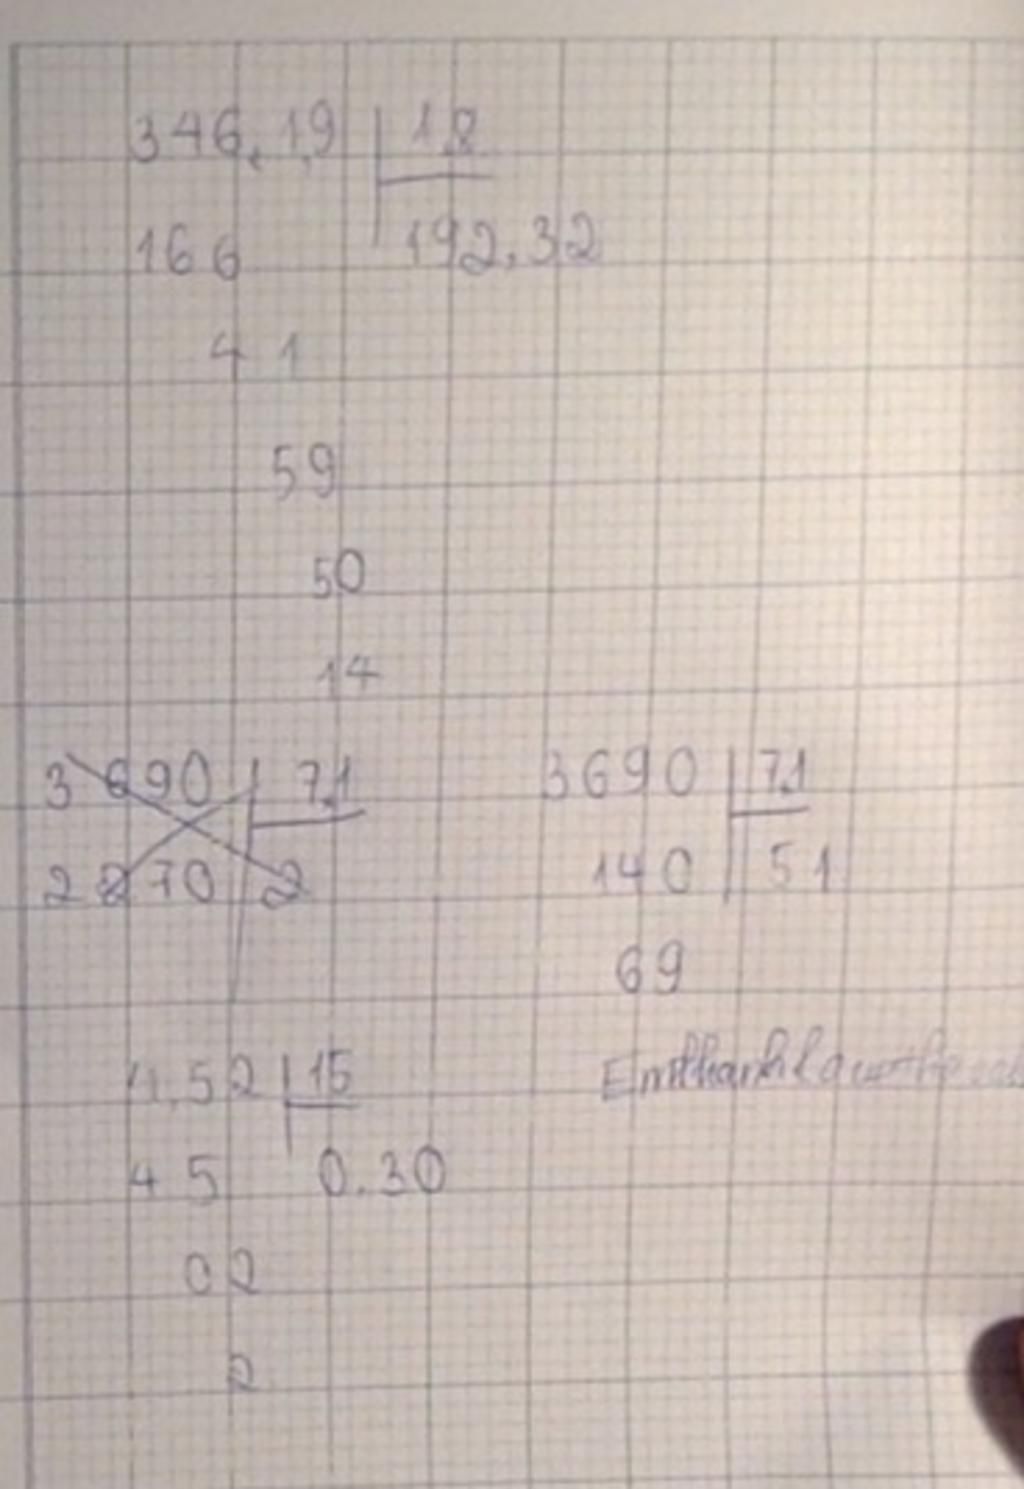 346,19 | 1,8
166 192,32
41
59
50
14
3690 | 7,1
2270 2
3690 | 7,1
140 51
69
4,52 | 15
45 0.30
02
2